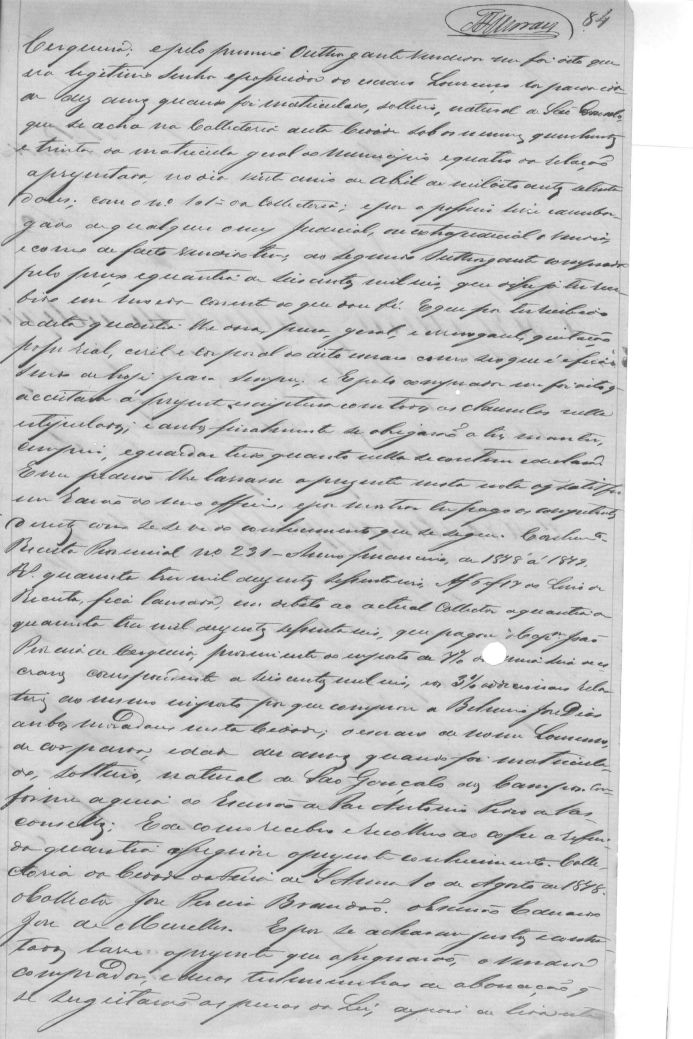 84
Cerqueira; e pelo primeiro Outhorgante vendedor me foi dito que
é legitimo Senhor e possuidor do escravo Lourenço cor parda idade
de dez annos quando foi matriculado, solteiro, natural de São Gonçalo,
que se acha na Collectoria desta Cidade sob os numeros quinhentos
e trinta da matricula geral do Municipio e quatro da relação
apresentada, no dia de Abril de mil oito centos setenta
e dous; com o nº da Collectoria; e que o possue livre e desembar-
gado de qualquer onus Judicial, ou extrajudicial o vendia,
e como de facto vendido tem, ao segundo Outhorgante comprador
pelo preço e quantia de seis centos mil reis, que disse já ter rece-
bido em moeda corrente do que dou fé. E que por ter recebido
a dita quantia lhe dava, plena, geral, e irrevogavel, quitação
posse real, civil e corporal do dito escravo como seo que é e fica
sendo de hoje para sempre. E pelo comprador me foi dito, q
acceitava a presente escriptura com todas as clausulas nella
estipuladas; e ambos finalmente se obrigavão a ter, manter,
cumprir, e guardar tudo quanto nella se contem e declara.
E me pedirão lhe lavrasse a presente nesta nota o q satisfiz
em rasão do meu officio, e por mostrar ter pago os competentes
Direitos como se se ve do conhecimento que se segue.
Receita Provincial nº 221 – Anno financeiro, de 1878 á 1879.
Rs. quarenta tres mil duzentos setenta reis, A f do Livro de
Receita, fica lançada, em debito ao actual Collector a quantia de
quarenta tres mil duzentos setenta reis, que pagou o Capm João
Pereira de Cerqueira, proveniente do imposto de 7% de meia sisa de es
cravo correspondente a seis centos mil reis, e 3% addicionaes rela
tivos ao mesmo imposto por que comprou a Belmiro José Dias
ambos moradores nesta Cidade; o escravo de nome Lourenço,
de cor parda, idade dez annos quando foi matricula-
do, solteiro, natural de São Gonçalo dos Campos con-
forme a guia do Escrivão da Paz Antonio de Vas-
concellos; E de como recebeo e recolheo ao cofre a referi-
da quantia assignou o presente conhecimento. Colle-
ctoria da Cidade da Feira de S. Anna 10 de Agosto de 1878.
O Collector José Pereira Brandão. O Escrivão Eduardo
José de Meirelles. E por se acharem justos e contra-
tados lavrei a presente que assignarão, o vendedor
comprador, e duas testemunhas de abonação, q
se sugeitarão as penas da Lei, depois de lida